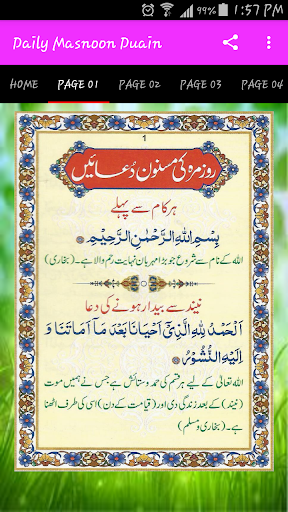 99% 1:57 PM
Daily Masnoon Duain
HOME PAGE 01 PAGE 02 PAGE 03 PAGE 04
1
روزمرہ کی مسنون دُعائیں
ہر کام سے پہلے
بِسْمِ اللهِ الرَّحْمٰنِ الرَّحِيْمِ
اللہ کے نام سے شروع جو بڑا مہربان نہایت رحم والا ہے۔ (بخاری)
نیند سے بیدار ہونے کی دعا
اَلْحَمْدُ لِلّٰهِ الَّذِىْٓ اَحْيَانَا بَعْدَ مَآ اَمَاتَنَا وَ
اِلَيْهِ النُّشُوْرُ
اللہ تعالیٰ کے لیے ہر قسم کی حمد و ستائش ہے جس نے ہمیں موت
(نیند) کے بعد زندگی دی اور (قیامت کے دن) اسی کی طرف اٹھنا
ہے۔ (بخاری و مسلم)